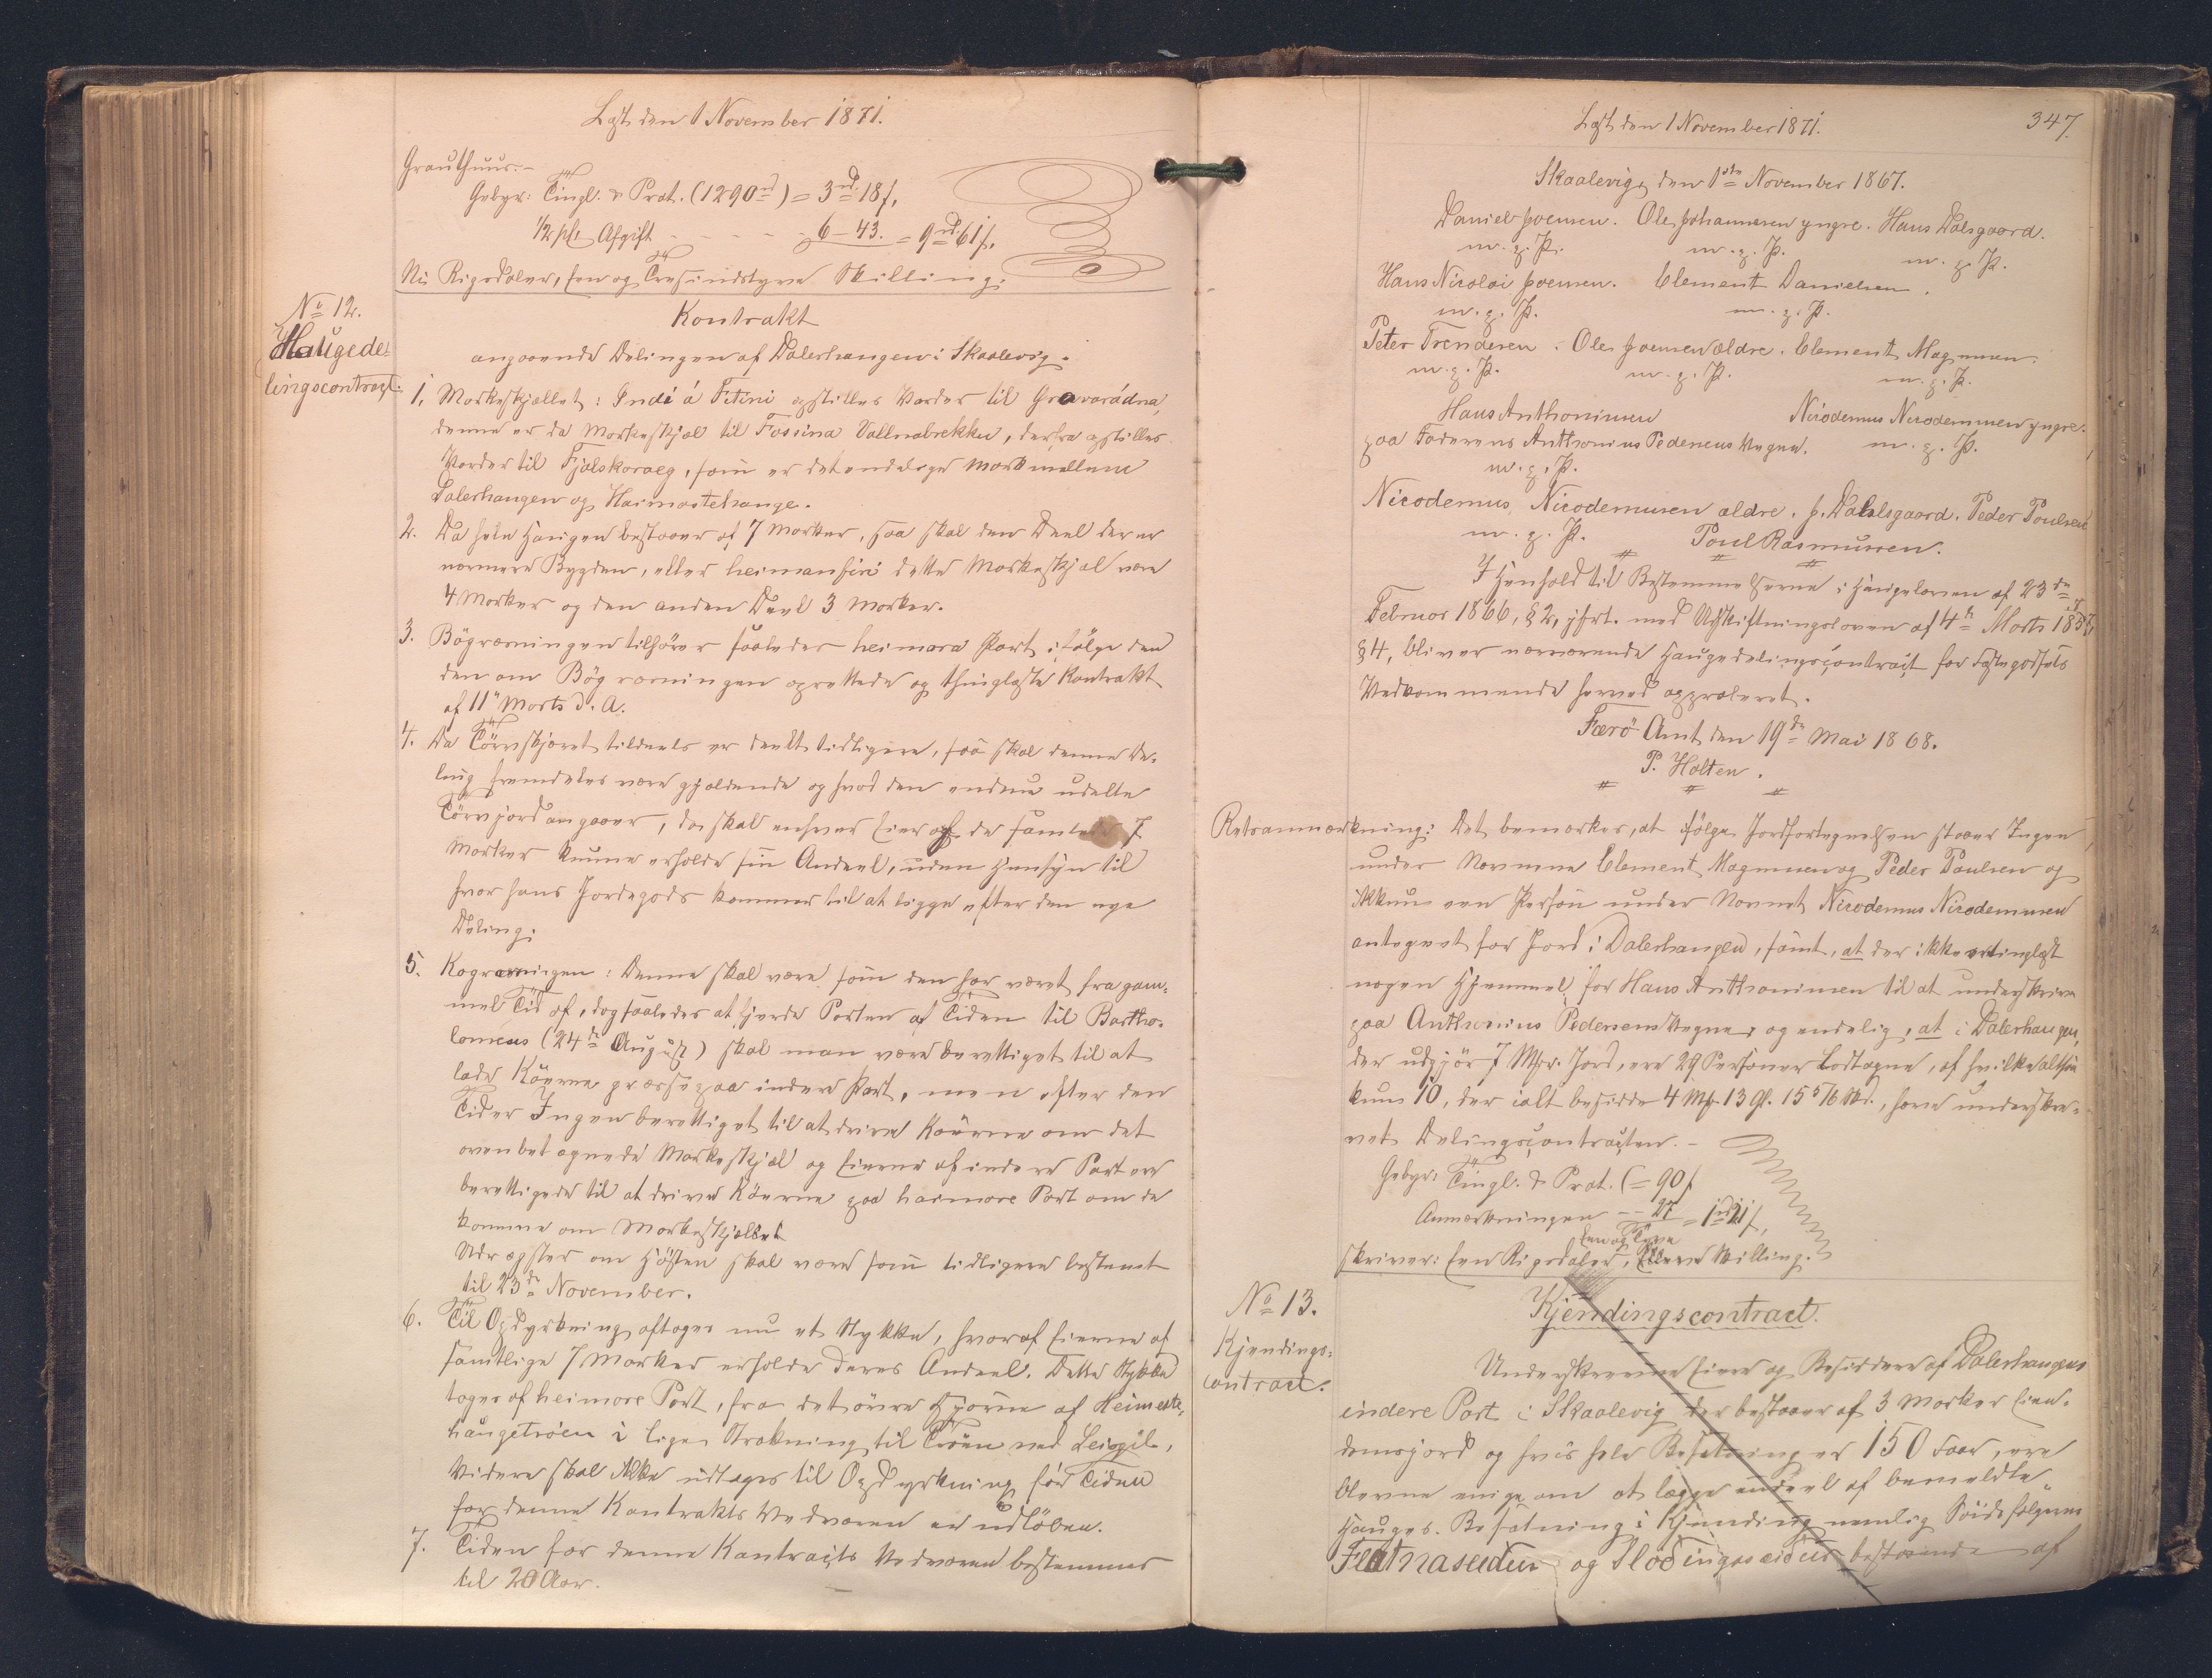 Læst den 1 November 1871.
Grauthuus.-
Gebyr: Tingl. & Prot. (1290 rd) = 3 rd 18 ß,
1/2 pCt Afgift - - - - - 6 - 43. = 9 rd 61 ß.
Ni Rigsdaler, Een og Tresindstyve Skilling.
No 12.
Haugede-
lingscontract.
Kontrakt
angaaende Delingen af Dalerhaugen i Skaalevig.
1. Markeskjællet: Indi á Fitini opstilles Varder til Gravarádna,
denne er da Markeskjæl til Fossina Vallnabrekku, derfra opstilles
Varder til Fjalskoraeg, som er det endelige Mark mellem
Dalerhaugen og Haimastehauge.
2. Da hele Haugen bestaaer af 7 Marker, saa skal den Deel der er
nærmere Bygden, eller heimanfiri dette Markeskjæl være
4 Marker og den anden Deel 3 Marker.
3. Bøgrøsningen tilhører saaledes heimara Part ifølge den
den om Bøgrøsningen oprettede og thinglæste Kontrakt
af 11te Marts d. A.
4. Da Tørvskjæret tildeels er deelt tidligere, saa skal denne De-
ling fremdeles være gjældende og hvad den endnu udelte
Tørvjord angaaer, da skal enhver Eier af de samlede 7
Marker kunne erholde sin Andeel, uden Hensyn til
hvor hans Jordegods kommer til at ligge efter den nye
Deling.
5. Kogræsningen: Denne skal være som den har været fra gam-
mel Tid af, dog saaledes at hjerde Parten af Tiden til Bartho-
lomeus (24de August) skal man være berettiget til at
lade Køerne græsse paa indere Part, men efter den
Tid er Ingen berettiget til at drive Køerne om det
ovenbetegnede Markeskjæl og Eierne af indere Part ere
berettigede til at drive Køerne paa haimare Part om de
komme om Markeskjællet
Udregster om Høsten skal være som tidligere bestemt
til 23de November.
6. Til Opdyrkning aftages nu et Stykke, hvoraf Eierne af
samtlige 7 Marker erholde deres Andeel. Dette Stykke
tages af heimare Part, fra det øvre Hjørne af Heimaste-
haugetröen i lige Strækning til Tröen ved Leiogil.
Videre skal ikke udtages til Opdyrkning før Tiden
for denne Kontrakts Vedvaren er udløben.
7. Tiden for denne Kontracts Vedvaren bestemmes
til 20 Aar.
Læst den 1 November 1871.
347.
Skaalevig, den 1ste November 1867.
Daniel Joensen. Ole Johannesen yngre. Hans Dalsgaard.
m. f. P. m. f. P. m. f. P.
Hans Nicolai Joensen. Clement Danielsen.
m. f. P. m. f. P.
Peter Trendesen. Ole Joensen ældre. Clement Magnusen.
m. f. P. m. f. P. m. f. P.
Hans Anthonisen Nicodemus Nicodemusen yngre.
paa Faderens Anthonius Pedersens Vegne. m. f. P.
m. f. P.
Nicodemus Nicodemusen ældre. J. Dahlsgaard. Peder Poulsen
m. f. P. Poul Rasmussen.
I Henhold til Bestemmelserne i Haugeloven af 23de
Februar 1866, § 2, jfrt. med Udskiftningsloven af 4de Marts 1857,
§ 4, bliver nærværende Haugedelingscontract for Fæstegodsets
Vedkommende herved approberet.
Færö Amt den 19de Mai 1868.
P. Holten.
Retsanmærkning: Det bemærkes, at ifølge Jordfortegnelsen staaer Ingen
under Navnene Clement Magnussen og Peder Poulsen og
ikkun een Person under Navnet Nicodemus Nicodemusen
antegnet for Jord i Dalerhaugen, samt, at der ikke er tinglæst
nogen Hjemmel for Hans Anthonisen til at underskrive
paa Anthonius Pedersens Vegne, og endelig, at i Dalerhaugen,
der udgjör 7 Mkr. Jord, ere 29 Personer Lodtagne, af hvilke altsaa
kun 10, der ialt besidde 4 Mk 13 Gl. 15 5/16 Sk., have underskre-
vet Delingscontracten. -
Gebyr: Tingl. & Prot. (= 90 ß
Anmærkningen - - 27 = 1 rd 21 ß,
Een og Tyve
skriver: Een Rigsdaler, Skilling.
No 13.
Kjendings-
contract.
Kjendingscontract.
Underskrevne Eiere og Besiddere af Dalerhaugens
indere Part i Skaalevig der bestaaer af 3 Marker Eien-
domsjord og hvis hele Besætning er 150 Faar, ere
blevne enige om at lægge endeel af bemeldte
Hauges Besætning i Kjending nemlig Söidefølgerne
Flatnaseidur og Slodingaseidur bestaaende af